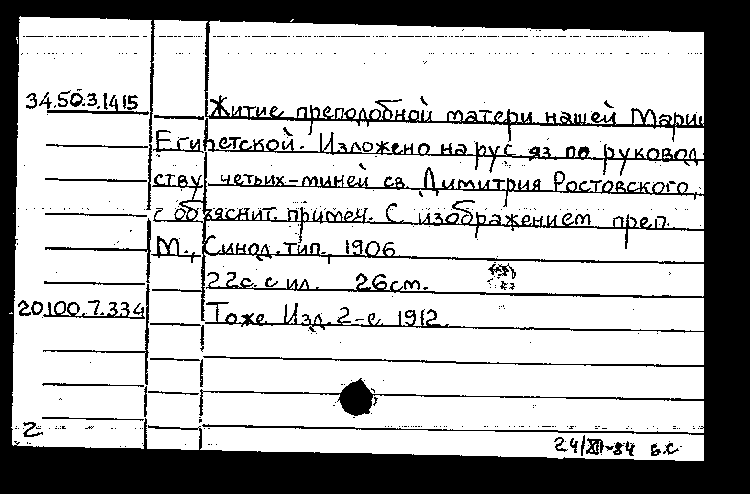 34.50.3.1415 Житие преподобной матери нашей Марии
Египетской. Изложено на рус яз. по руковод-
ству четьих-миней св. Димитрия Ростовского,
с объяснит. примеч. С изображением преп.
М., Синод. тип., 1906
22с. с ил. 26см.
20.100.7.334 Тоже. Изд. 2-е. 1912.
2
24/XII-84 Б.С